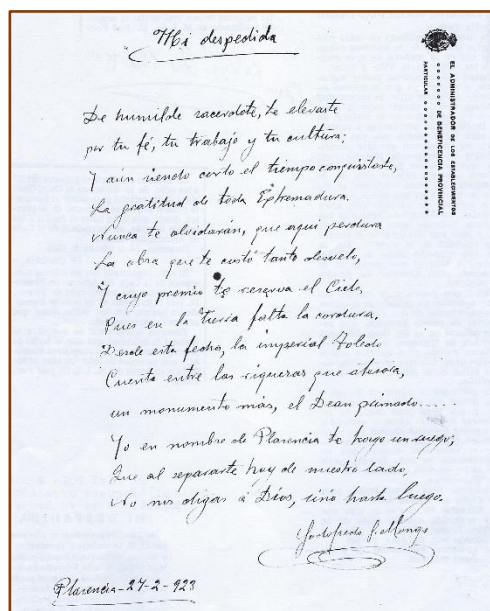 Mi despedida
EL ADMINISTRADOR DE LOS ESTABLECIMIENTOS
DE BENEFICENCIA PROVINCIAL
PARTICULAR
De humilde sacerdote, te elevaste
por tu fé, tu trabajo y tu cultura;
Y aún siendo corto el tiempo conquistaste,
La gratitud de toda Extremadura.
Nunca te olvidarán, que aqui perdura
La obra que te costó tanto desvelo,
Y cuyo premio te reserva el Cielo,
Pues en la tierra falta la cordura.
Desde esta fecha, la imperial Toledo
Cuenta entre las riquezas que atesora,
un monumento más, el Dean primado.....
Yo en nombre de Plasencia te hago un ruego;
Que al separarte hoy de nuestro lado,
No nos digas á Dios, sinó hasta luego.
Godofredo
Plasencia-27-2-923